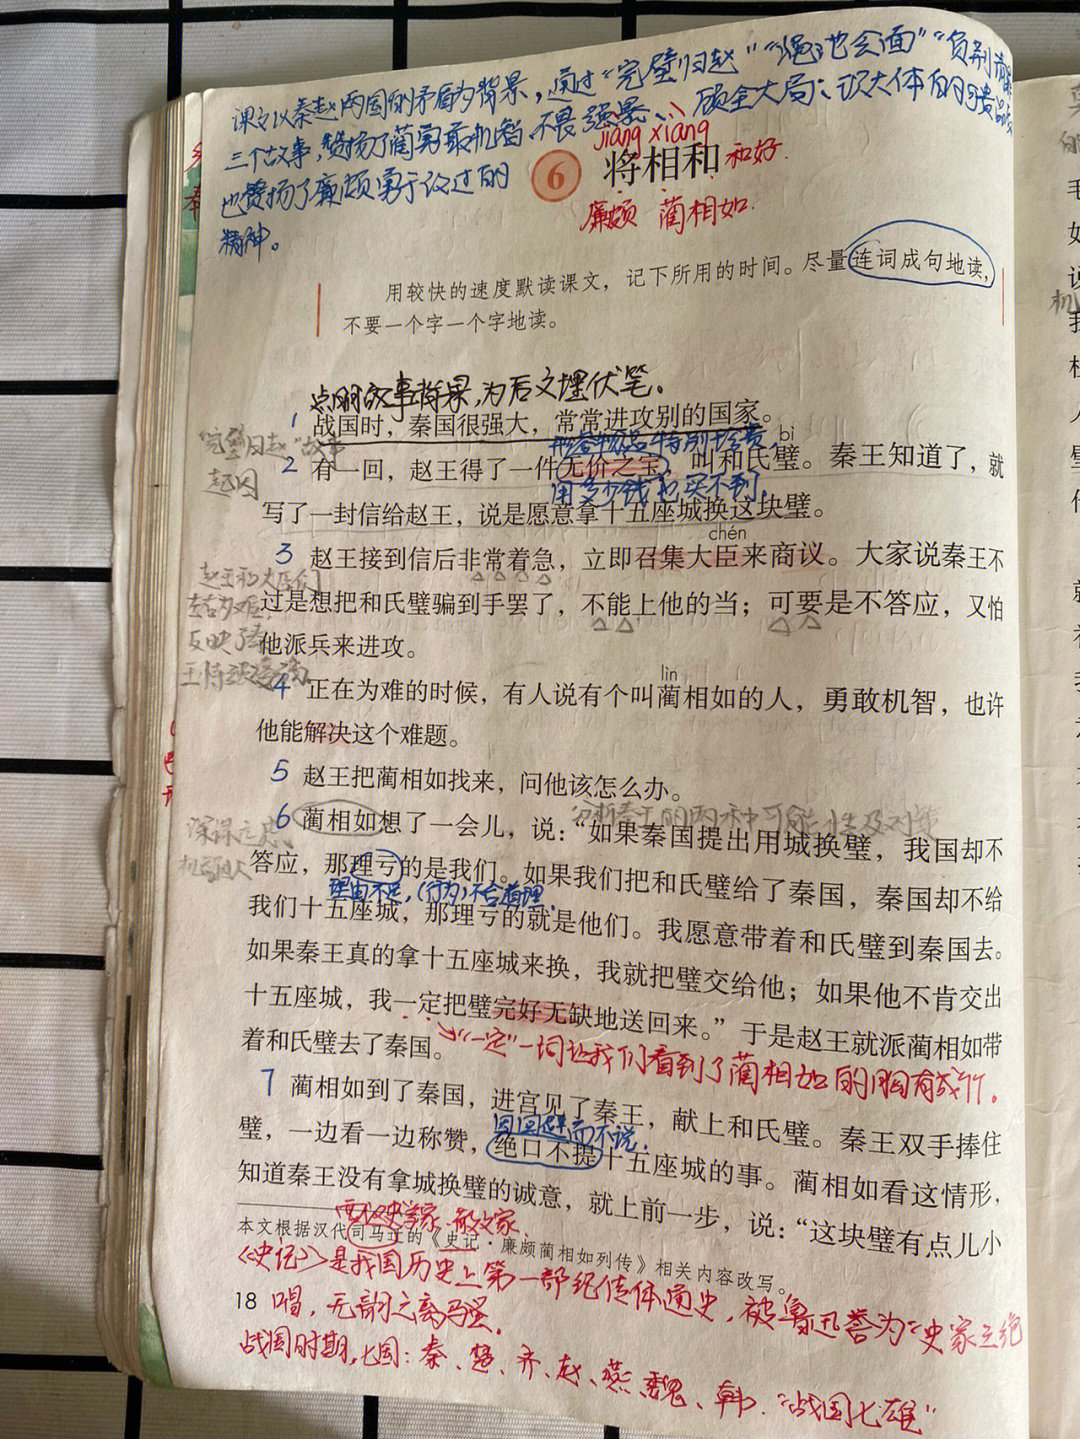 课文以秦赵两国的矛盾为背景，通过“完璧归赵”“渑池会面”“负荆
三个故事，赞扬了蔺 机智、不畏强暴、顾全大局、识大体的 品质
也赞扬了廉颇勇于 过的
精神。
jiāng xiàng
6 将相和 和好.
廉颇 蔺相如.
用较快的速度默读课文，记下所用的时间。尽量连词成句地读，
不要一个字一个字地读。
点明故事背景，为后文埋伏笔。
1 战国时，秦国很强大，常常进攻别的国家。
完璧归赵”故事
起因
形容物品特别珍贵，
bì
2 有一回，赵王得了一件无价之宝，叫和氏璧。秦王知道了，就
用多少钱也买不到.
写了一封信给赵王，说是愿意拿十五座城换这块璧。
chén
3 赵王接到信后非常着急，立即召集大臣来商议。大家说秦王不
赵王和大臣们
过是想把和氏璧骗到手罢了，不能上他的当；可要是不答应，又怕
反映了秦
他派兵来进攻。
王恃强
lìn
4 正在为难的时候，有人说有个叫蔺相如的人，勇敢机智，也许
他能解决这个难题。
5 赵王把蔺相如找来，问他该怎么办。
分析秦王的两种可能性及对策
6 蔺相如想了一会儿，说：“如果秦国提出用城换璧，我国却不
深谋远虑
答应，那理亏的是我们。如果我们把和氏璧给了秦国，秦国却不给
理由不足，(行为)不合道理.
我们十五座城，那理亏的就是他们。我愿意带着和氏璧到秦国去。
如果秦王真的拿十五座城来换，我就把璧交给他；如果他不肯交出
十五座城，我一定把璧完好无缺地送回来。”于是赵王就派蔺相如带
着和氏璧去了秦国。
“一定”一词让我们看到了蔺相如的胸有成竹。
7 蔺相如到了秦国，进宫见了秦王，献上和氏璧。秦王双手捧住
因回避而不说.
璧，一边看一边称赞，绝口不提十五座城的事。蔺相如看这情形，
知道秦王没有拿城换璧的诚意，就上前一步，说：“这块璧有点儿小
西汉史学家、散文家
本文根据汉代司马迁的《史记·廉颇蔺相如列传》相关内容改写。
《史记》是我国历史上第一部纪传体通史，被鲁迅誉为“史家之绝
18
唱，无韵之离骚.
战国时期，七国：秦、楚、齐、赵、燕、魏、韩.“战国七雄”